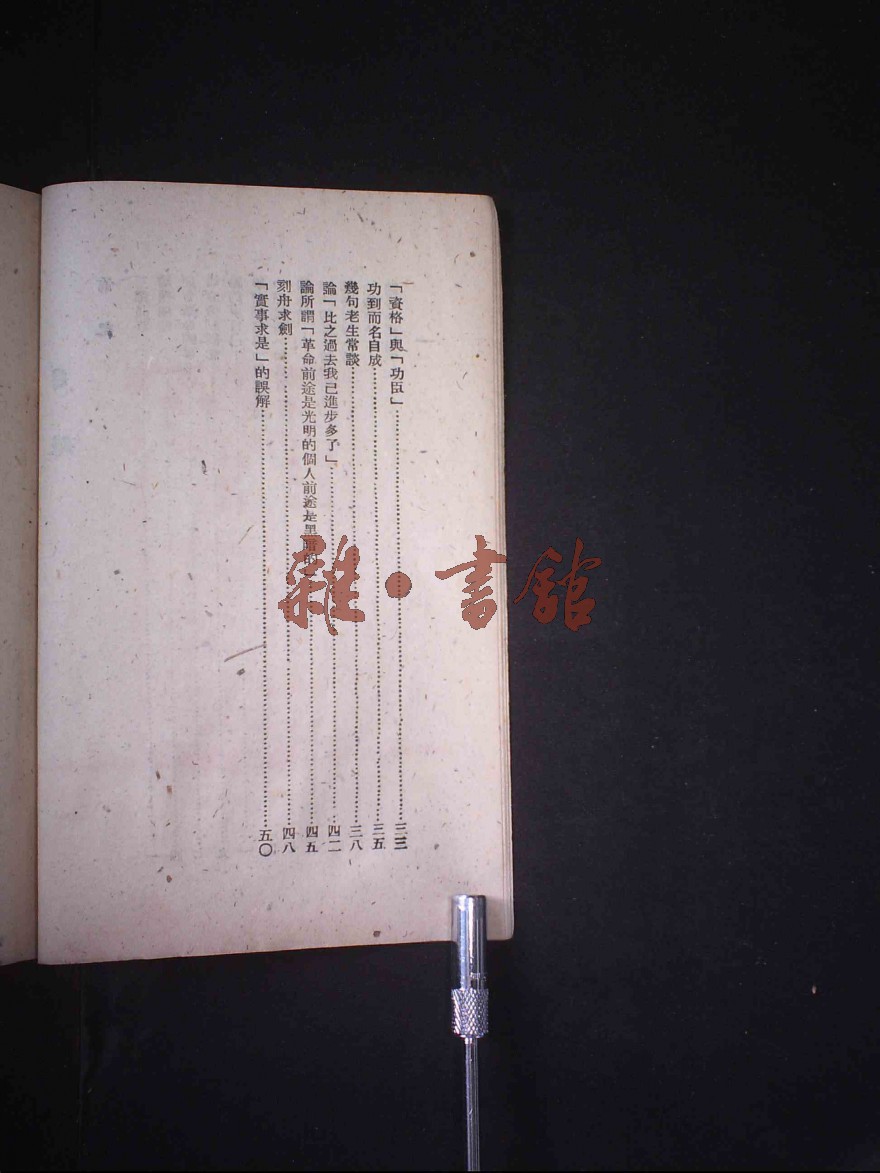 「資格」與「功臣」……三三
功到而名自成……三五
幾句老生常談……三八
論「比之過去我已進步多了」……四二
論所謂「革命前途是光明的個人前途是黑暗的……四五
刻舟求劍……四八
「實事求是」的誤解……五〇
雜·書館